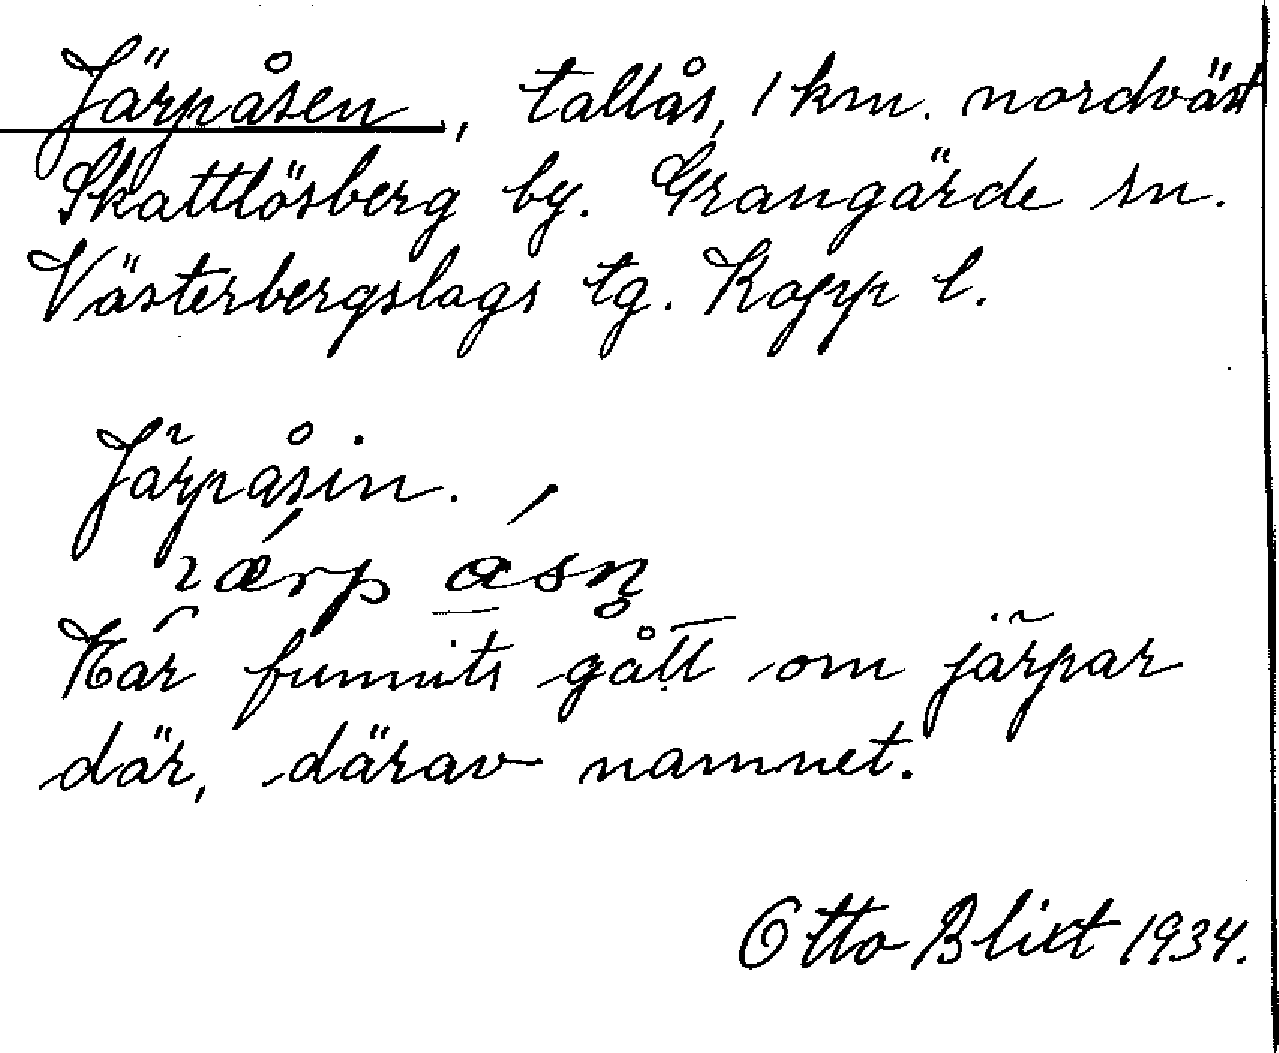 Järpåsen, tallås, 1 km. nordväst
Skattlösberg by. Grangärde sn.
Västerbergslags tg. Kopp l.
Järpåsin.
Här funnits gått om järpar
där, därav namnet.
Otto Blixt 1934.